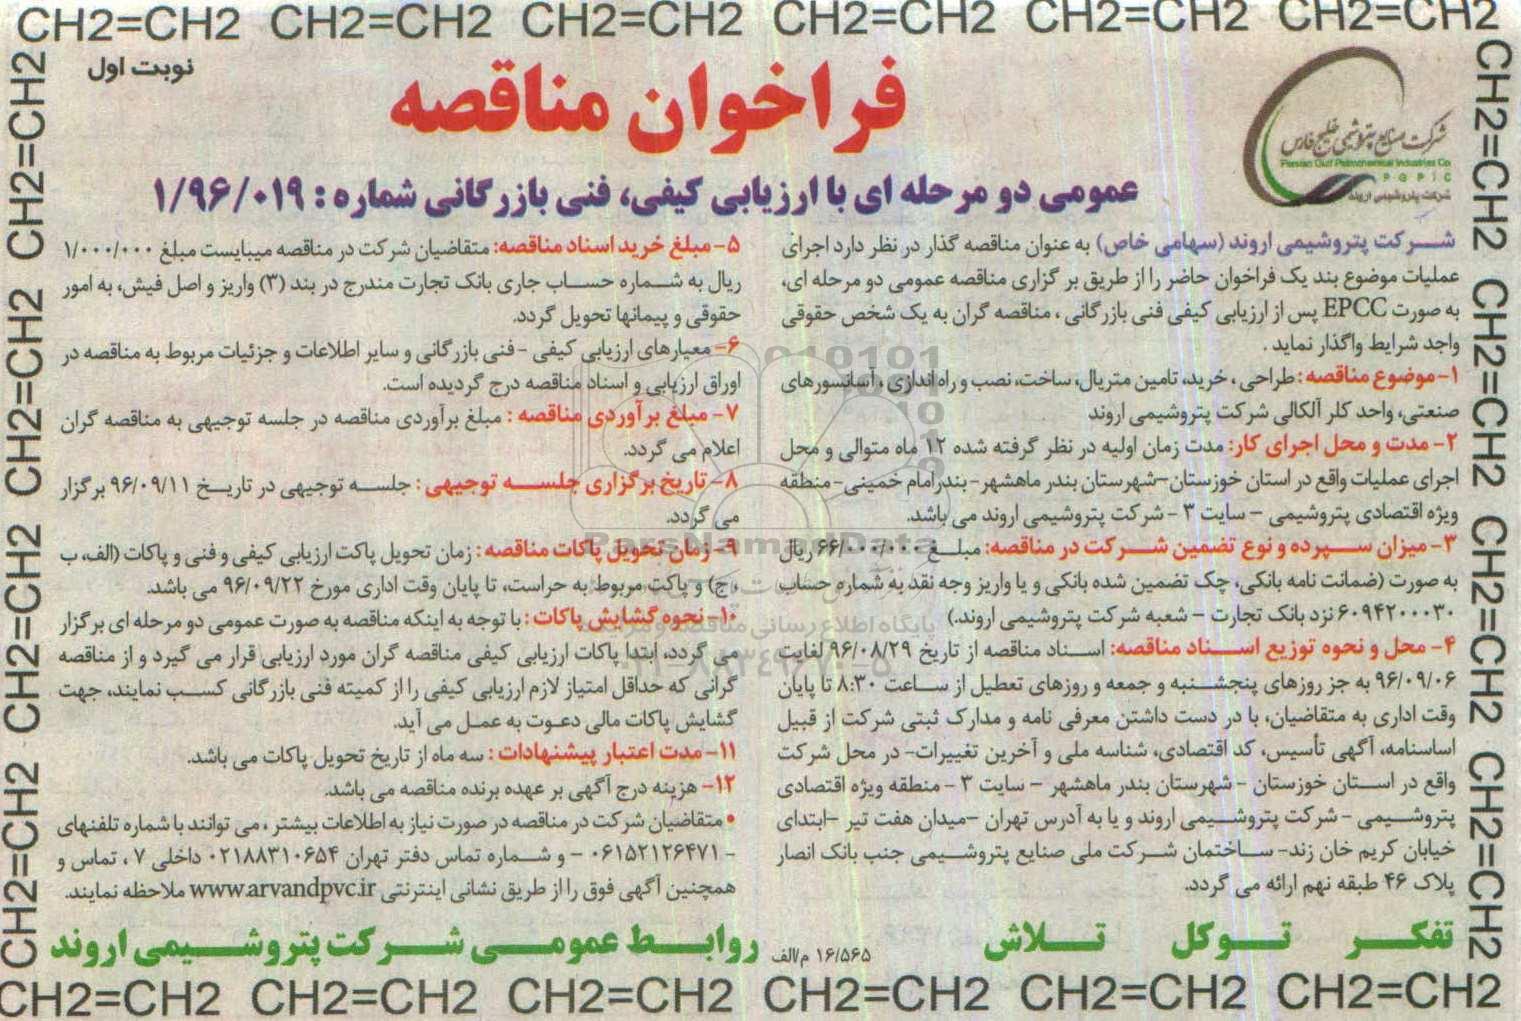 CH2=CH2 CH2=CH2 CH2=CH2 CH2=CH2 CH2=CH2 CH2=CH2
نوبت اول
فراخوان مناقصه
شرکت صنایع پتروشیمی خلیج فارس
Persian Gulf Petrochemical Industries Co
PGPIC
شرکت پتروشیمی اروند
عمومی دو مرحله ای با ارزیابی کیفی، فنی بازرگانی شماره : ۱/۹۶/۰۱۹
شرکت پتروشیمی اروند (سهامی خاص) به عنوان مناقصه گذار در نظر دارد اجرای
عملیات موضوع بند یک فراخوان حاضر را از طریق بر گزاری مناقصه عمومی دو مرحله ای،
به صورت EPCC پس از ارزیابی کیفی فنی بازرگانی ، مناقصه گران به یک شخص حقوقی
واجد شرایط واگذار نماید .
۱- موضوع مناقصه : طراحی ، خرید، تامین متریال، ساخت، نصب و راه اندازی ، آسانسورهای
صنعتی، واحد کلر آلکالی شرکت پتروشیمی اروند
۲- مدت و محل اجرای کار: مدت زمان اولیه در نظر گرفته شده ۱۲ ماه متوالی و محل
اجرای عملیات واقع در استان خوزستان-شهرستان بندر ماهشهر- بندرامام خمینی- منطقه
ویژه اقتصادی پتروشیمی – سایت ۳ - شرکت پتروشیمی اروند می باشد.
۳- میزان سپرده و نوع تضمین شرکت در مناقصه: مبلغ ۶۶/۰۰۰/۰۰۰ ریال
به صورت (ضمانت نامه بانکی، چک تضمین شده بانکی و یا واریز وجه نقد به شماره حساب
۶۰۹۴۲۰۰۰۳۰ نزد بانک تجارت – شعبه شرکت پتروشیمی اروند.)
۴- محل و نحوه توزیع اسناد مناقصه: اسناد مناقصه از تاریخ ۹۶/۰۸/۲۹ لغایت
۹۶/۰۹/۰۶ به جز روزهای پنجشنبه و جمعه و روزهای تعطیل از ساعت ۸:۳۰ تا پایان
وقت اداری به متقاضیان، با در دست داشتن معرفی نامه و مدارک ثبتی شرکت از قبیل
اساسنامه، آگهی تأسیس، کد اقتصادی، شناسه ملی و آخرین تغییرات- در محل شرکت
واقع در استان خوزستان - شهرستان بندر ماهشهر – سایت ۳ - منطقه ویژه اقتصادی
پتروشیمی - شرکت پتروشیمی اروند و یا به آدرس تهران –میدان هفت تیر –ابتدای
خیابان کریم خان زند- ساختمان شرکت ملی صنایع پتروشیمی جنب بانک انصار
پلاک ۴۶ طبقه نهم ارائه می گردد.
۵- مبلغ خرید اسناد مناقصه: متقاضیان شرکت در مناقصه میبایست مبلغ ۱/۰۰۰/۰۰۰
ریال به شماره حساب جاری بانک تجارت مندرج در بند (۳) واریز و اصل فیش، به امور
حقوقی و پیمانها تحویل گردد.
۶- معیارهای ارزیابی کیفی - فنی بازرگانی و سایر اطلاعات و جزئیات مربوط به مناقصه در
اوراق ارزیابی و اسناد مناقصه درج گردیده است.
۷- مبلغ بر آوردی مناقصه : مبلغ برآوردی مناقصه در جلسه توجیهی به مناقصه گران
اعلام می گردد.
۸- تاریخ برگزاری جلسه توجیهی : جلسه توجیهی در تاریخ ۹۶/۰۹/۱۱ برگزار
می گردد.
۹- زمان تحویل پاکات مناقصه : زمان تحویل پاکت ارزیابی کیفی و فنی و پاکات (الف، ب
، ج) و پاکت مربوط به حراست، تا پایان وقت اداری مورخ ۹۶/۰۹/۲۲ می باشد.
۱۰- نحوه گشایش پاکات : با توجه به اینکه مناقصه به صورت عمومی دو مرحله ای برگزار
می گردد، ابتدا پاکات ارزیابی کیفی مناقصه گران مورد ارزیابی قرار می گیرد و از مناقصه
گرانی که حداقل امتیاز لازم ارزیابی کیفی را از کمیته فنی بازرگانی کسب نمایند، جهت
گشایش پاکات مالی دعوت به عمل می آید.
۱۱- مدت اعتبار پیشنهادات : سه ماه از تاریخ تحویل پاکات می باشد.
۱۲- هزینه درج آگهی بر عهده برنده مناقصه می باشد.
• متقاضیان شرکت در مناقصه در صورت نیاز به اطلاعات بیشتر ، می توانند با شماره تلفنهای
- ۰۶۱۵۲۱۲۶۴۷۱ – و شماره تماس دفتر تهران ۰۲۱۸۸۳۱۰۶۵۴ داخلی ۷ ، تماس و
همچنین آگهی فوق را از طریق نشانی اینترنتی www.arvandpvc.ir ملاحظه نمایند.
تفکر توکل تلاش
۱۶/۵۶۵ م/الف
روابط عمومی شرکت پتروشیمی اروند
CH2=CH2 CH2=CH2 CH2=CH2 CH2=CH2 CH2=CH2 CH2=CH2
CH2=CH2 CH2=CH2 CH2=CH2 CH2=CH2
CH2=CH2 CH2=CH2 CH2=CH2 CH2=CH2
ParsNamadData
پایگاه اطلاع رسانی مناقصه و مزایده